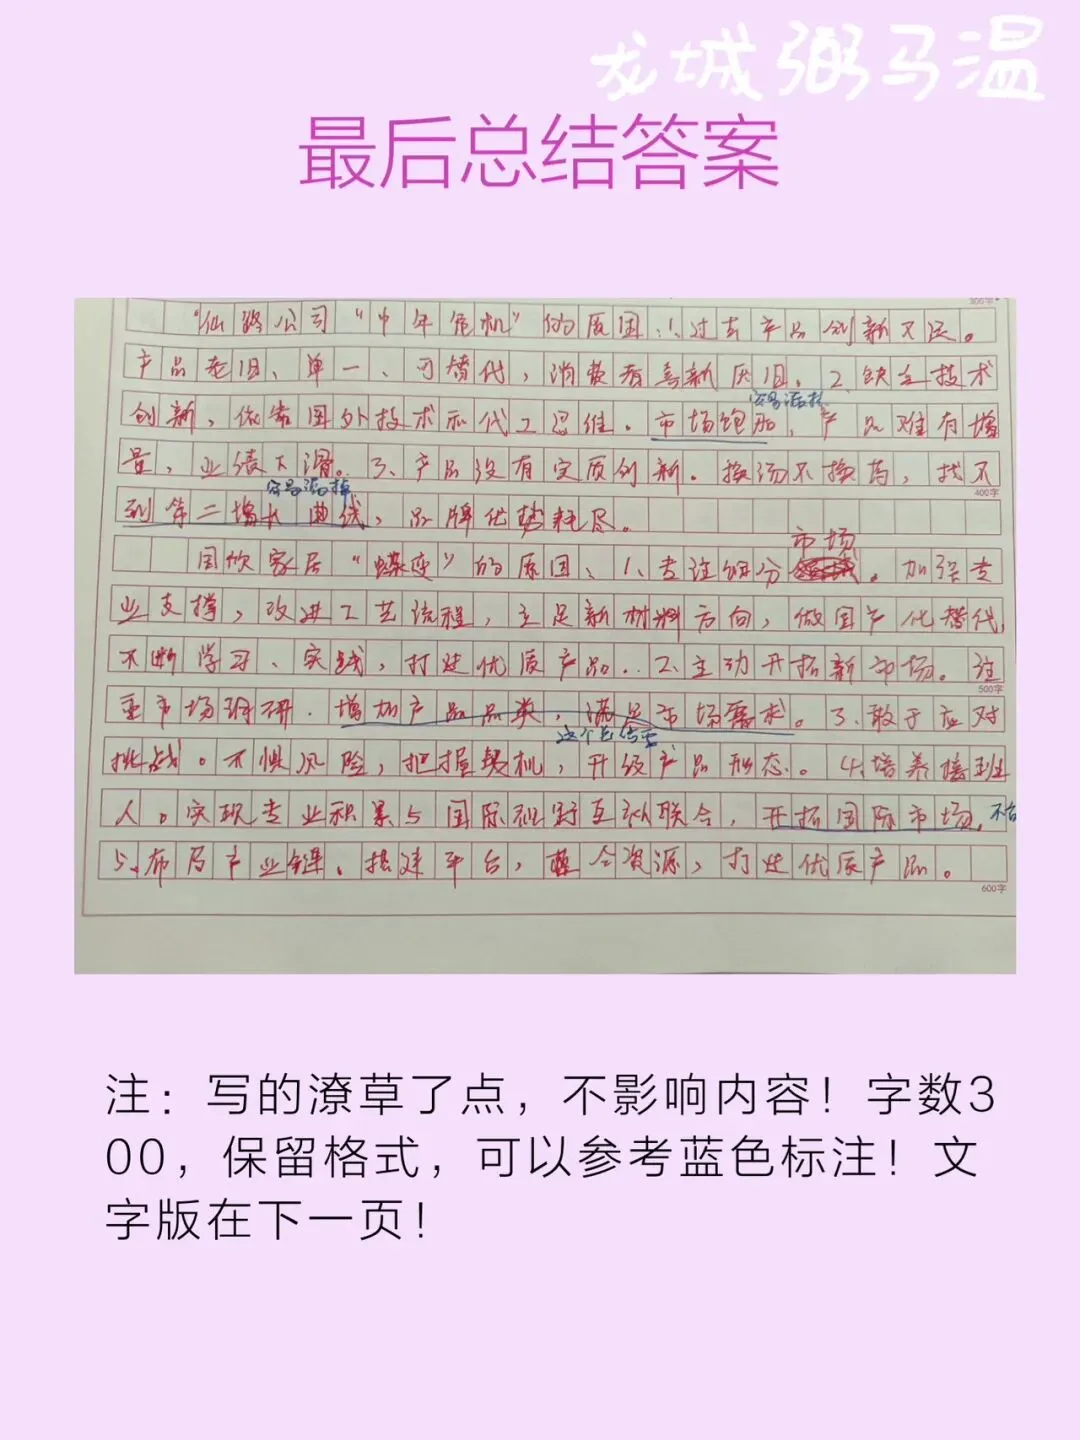 龙城弼马温
最后总结答案
300字
"仙路公司"中年危机"的原因:1.过去产品创新不足。
产品老旧、单一、可替代,消费者喜新厌旧。2.缺乏技术
容易漏掉
创新,依靠国外技术和代工思维。市场饱和,产品难有增
量,业绩下滑。3、产品没有实质创新。换汤不换药,找不
400字
容易漏掉
到第二增长曲线,品牌优势耗尽。
市场
国欣家居"蝶变"的原因、1、专注细分。加强专
业支撑,改进工艺流程,立足新材料方向,做国产化替代,
不断学习、实践,打造优质产品..2.主动开拓新市场。注
500字
重市场调研.增加产品品类,满足市场需求。3.敢于应对
这个
挑战。不惧风险,把握契机,升级产品形态。4.培养接班
人。实现专业积累与国际视野互认联合,开拓国际市场,
5、布局产业链.搭建平台,整合资源,打造优质产品。
600字
注:写的潦草了点,不影响内容!字数3
00,保留格式,可以参考蓝色标注!文
字版在下一页!